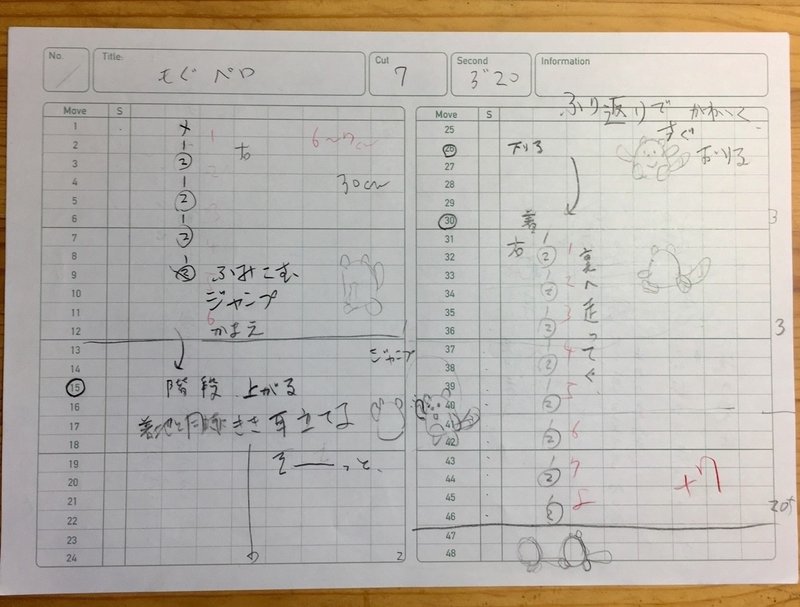 No.
Title:
もぐ ペロ
Cut
7
Second
3"20
Information
Move S
1
2
3
4
5
6
7
8
9
10
11
12
13
14
15
16
17
18
19
20
21
22
23
24
右
6〜7c〜
30c〜
ふみこむ
ジャンプ
かまえ
ジャンプ
階段 上がる
着地と同時 きき耳立てる
そ――っと、
2
Move S
25
26
27
28
29
30
31
32
33
34
35
36
37
38
39
40
41
42
43
44
45
46
47
48
ふり返りで かわいく
すぐ
おりる
下りる
着
右
3
3
+7